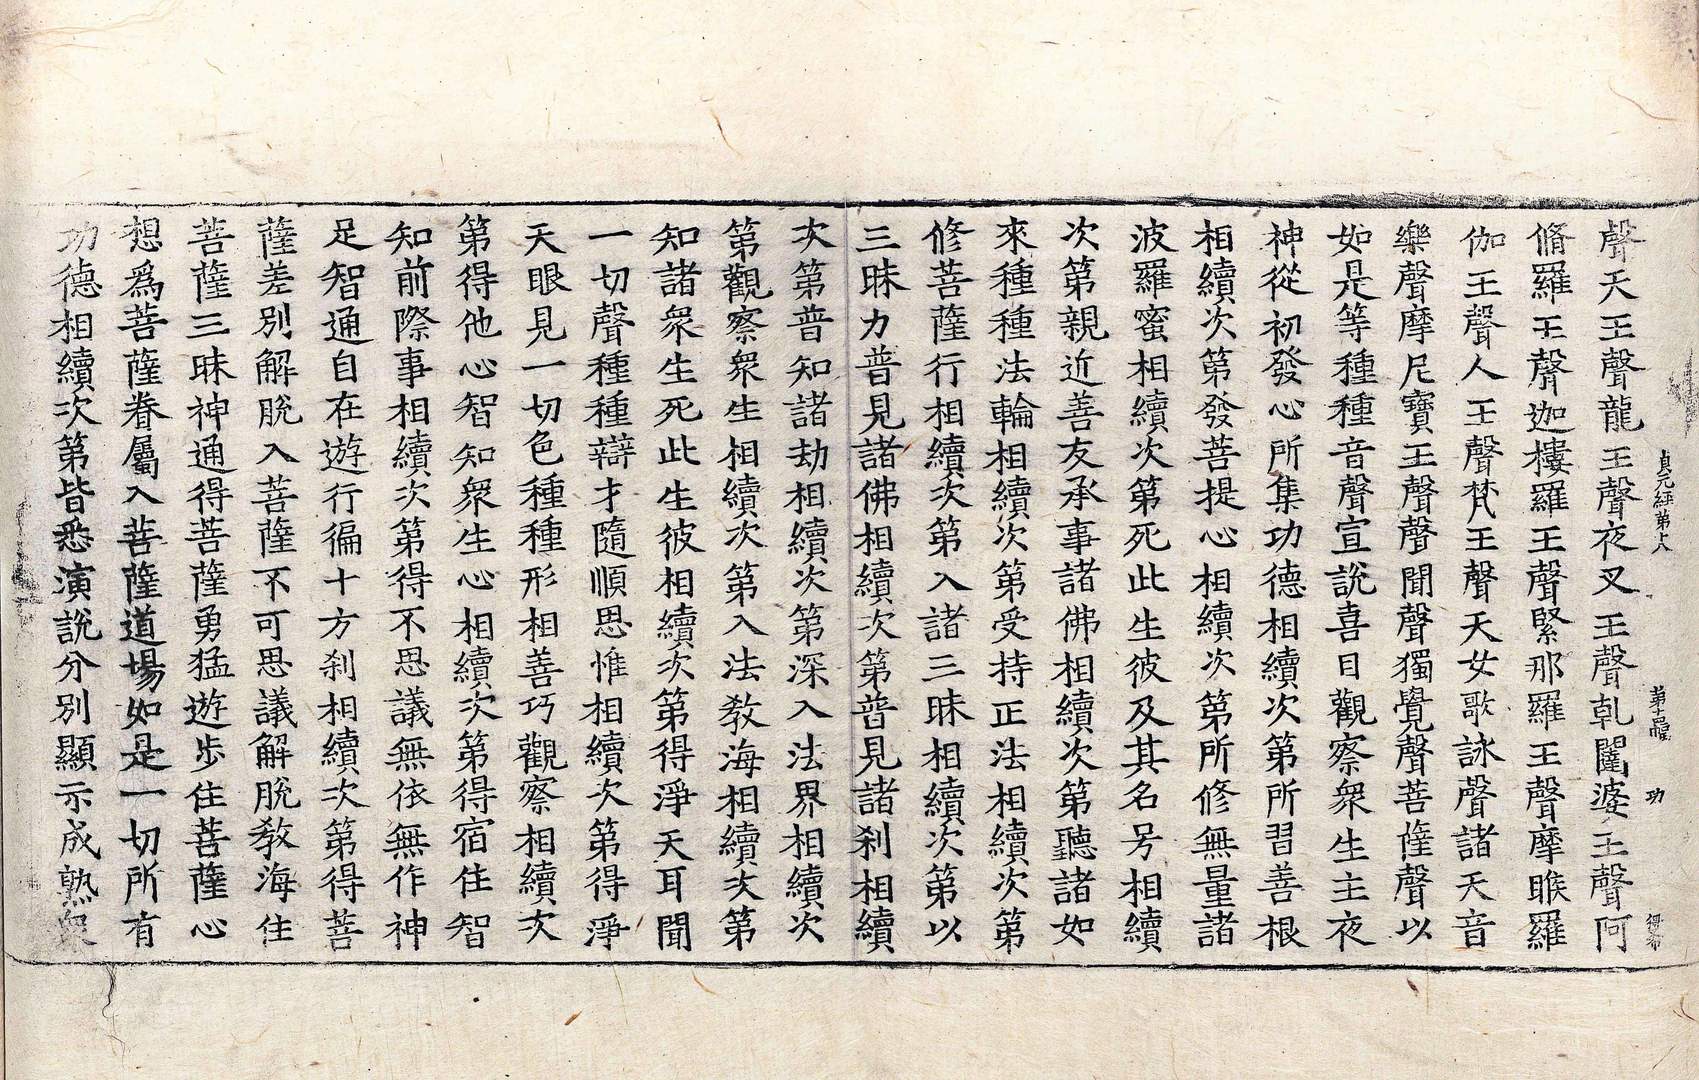 貞元經第十八 第十四幅 功 得布
聲天王聲龍王聲夜叉王聲乹闥婆王聲阿
脩羅王聲迦樓羅王聲緊那羅王聲摩睺羅
伽王聲人王聲梵王聲天女歌詠聲諸天音
樂聲摩尼寶王聲聲聞聲獨覺聲菩薩聲以
如是等種種音聲宣說喜目觀察衆生主夜
神從初發心所集功德相續次第所習善根
相續次第發菩提心相續次第所修無量諸
波羅蜜相續次第死此生彼及其名号相續
次第親近善友承事諸佛相續次第聽諸如
來種種法輪相續次第受持正法相續次第
修菩薩行相續次第入諸三昧相續次第以
三昧力普見諸佛相續次第普見諸刹相續
次第普知諸劫相續次第深入法界相續次
第觀察衆生相續次第入法教海相續次第
知諸衆生死此生彼相續次第得淨天耳聞
一切聲種種辯才隨順思惟相續次第得淨
天眼見一切色種種形相善巧觀察相續次
第得他心智知衆生心相續次第得宿住智
知前際事相續次第得不思議無依無作神
足智通自在遊行徧十方刹相續次第得菩
薩差別解脫入菩薩不可思議解脫教海住
菩薩三昧神通得菩薩勇猛遊步住菩薩心
想爲菩薩眷屬入菩薩道場如是一切所有
功德相續次第皆悉演說分別顯示成熟衆